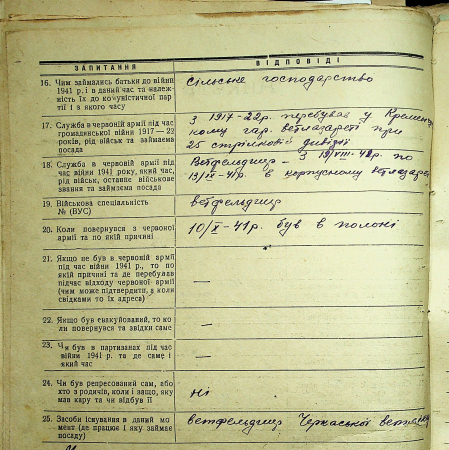 ЗАПИТАННЯ
ВІДПОВІДІ
16. Чим займались батьки до війни
1941 р. і в даний час та належ-
ність їх до комуністичної пар-
тії і в якого часу
сільське господарство
17. Служба в червоній армії під час
громадянської війни 1917—22
років, рід військ та займаема
посада
З 1917-22р. перебував у Кремен
кому гар. ветлазареті при
25 стрілковій дивізії
18. Служба в червоній армії під
час війни 1941 року, який час,
рід військ, останнє військове
звання та займаема посада
Ветфельдшер – з 19/VIII-41р. по
19/IX-41р. в корпусному ветлазареті
19. Військова спеціальність
№ (ВУС)
ветфельдшер
20. Коли повернувся з червоної
армії та по якій причині
10/X-41р. був в полоні
21. Якщо не був в червоній армії
під час війни 1941 р., то по
якій причині та де перебував
підчас відходу червоної армії
(чим може підтвердити, а коли
свідками то їх адреса)
—
22. Якщо був евакуйований, то ко
ли повернувся та звідки саме
—
23. Чи був в партизанах під час
війни 1941 р. та де саме і
який час
—
24. Чи був репресований сам, або
хто з родичів, коли і защо, яку
мав кару та чи відбув її
ні
25. Засоби існування в даний мо-
мент (де працює і яку займає
посаду)
ветфельдшер Черкаської